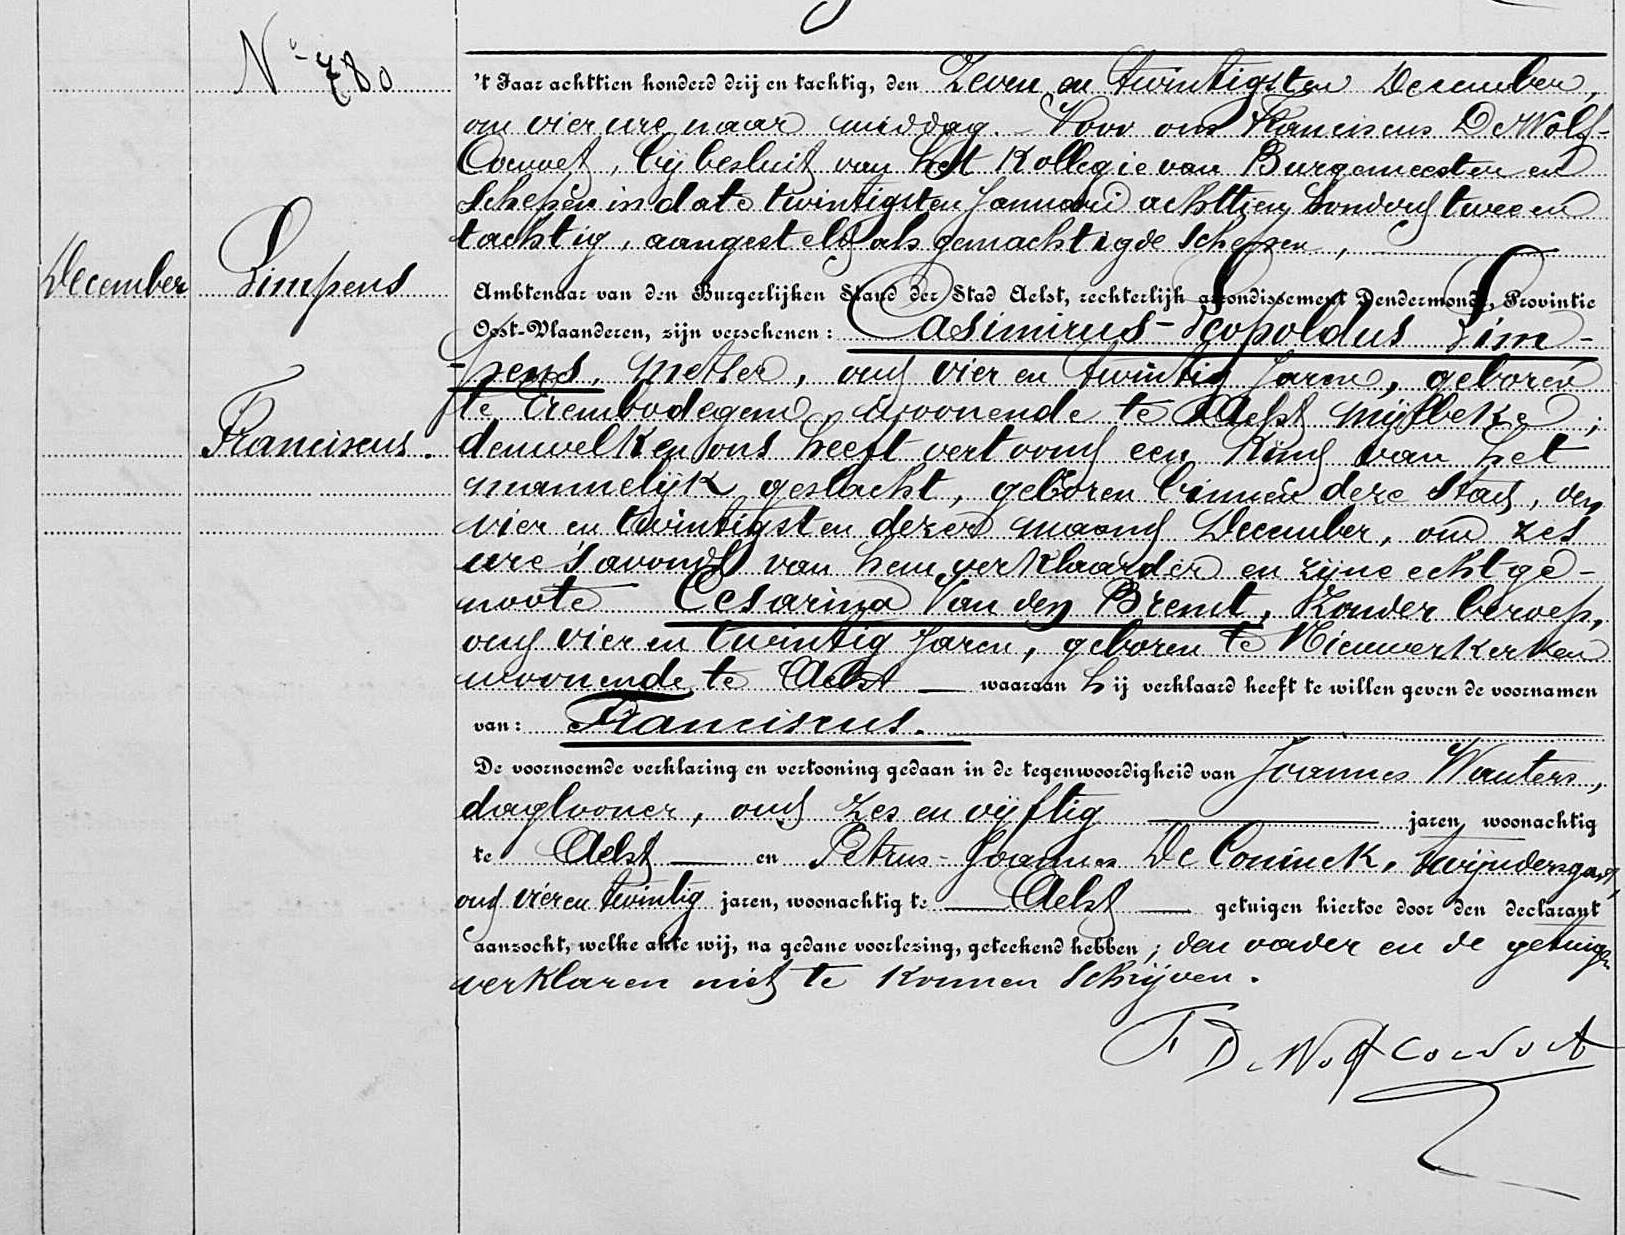 N° 780
December
Limpens
Franciscus.
't Jaar achttien honderd drij en tachtig, den Zeven en twintigsten December,
om vier ure naar middag. Voor ons Franciscus De Wolf-
Cowoet, bij besluit van het Kollegie van Burgemeester en
Schepen in date twintigsten Januari achttien honderd twee en
tachtig, aangesteld als gemachtigde Schepen,
Ambtenaar van den Burgerlijken Stand der Stad Aelst, rechterlijk arrondissement Dendermonde, Provintie
Oost-Vlaanderen, zijn verschenen: Casimirus-Leopoldus Lim-
-pens, metser, oud vier en twintig Jaren, geboren
te Erembodegem, woonende te Aelst Mijlbeke;
denwelken ons heeft vertoond een Kind van het
mannelijk geslacht, geboren binnen deze Stad, den
vier en twintigsten dezer maand December, om zes
ure 's avonds van hem verklaarder en zijne echtge-
noote Cesarina Van den Bremt, Zonder beroep,
oud vier en twintig Jaren, geboren te Nieuwerkerken
woonende te Aelst waaraan hij verklaard heeft te willen geven de voornamen
van: Franciscus.
De voornoemde verklaring en vertooning gedaan in de tegenwoordigheid van Joannes Wauters,
daglooner, oud zes en vijftig jaren, woonachtig
te Aelst en Petrus-Joannes De Coninck, twijndersgast,
oud vier en twintig jaren, woonachtig te Aelst getuigen hiertoe door den declarant
aanzocht, welke akte wij, na gedane voorlezing, geteekend hebben; den vader en de getuigen
verklaren niet te konnen Schrijven.
F De Wolf Cowoet